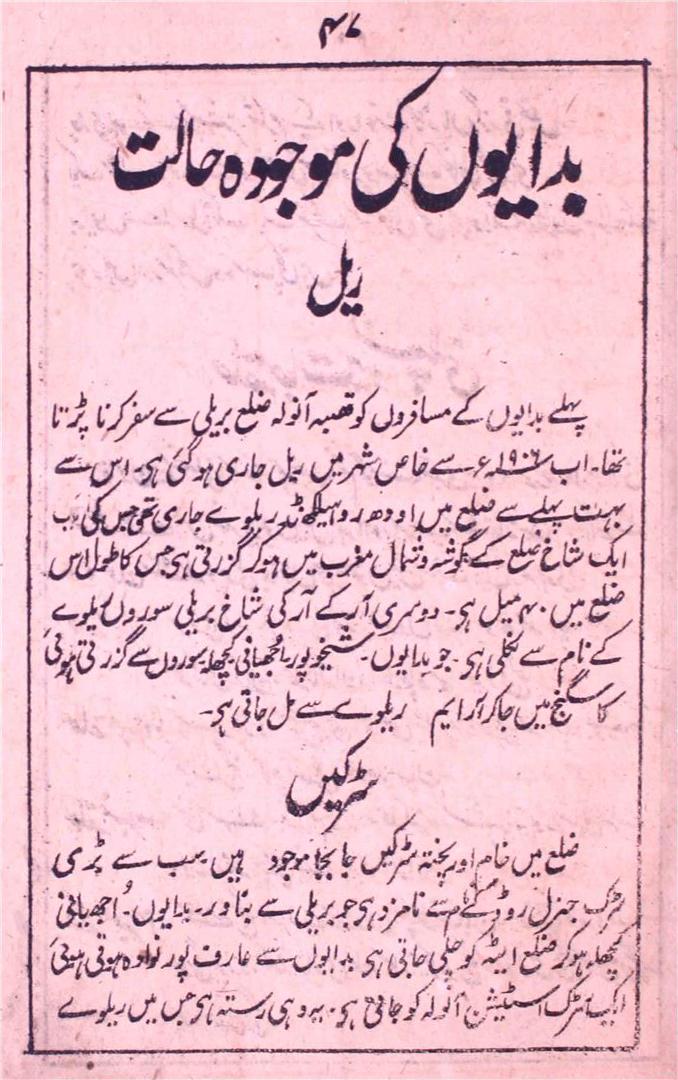 ۴۷
بدایوں کی موجودہ حالت
ریل
پہلے بدایوں کے مسافروں کو قصبہ آنولہ ضلع بریلی سے سفر کرنا پڑتا
تھا۔ اب ۱۹۰۶ء سے خاص شہر میں ریل جاری ہو گئی ہی۔ اس سے
بہت پہلے سے ضلع میں اودھ روہیلکھنڈ ریلوے جاری تھی جس کی اب
ایک شاخ ضلع کے گوشہ و شمال مغرب میں ہو کر گزرتی ہی جس کا طول اس
ضلع میں ۴۰ میل ہی۔ دوسری آر کے آر کی شاخ بریلی سوروں ریلوے
کے نام سے نکلی ہی۔ جو بدایوں۔ شیخوپور۔ اُجھیانی کچھلہ سوروں سے گزرتی ہوئی
کاسگنج میں جا کر آر ایم ریلوے سے مل جاتی ہی۔
سڑکیں
ضلع میں خام اور پختہ سڑکیں جا بجا موجود ہیں سب سے بڑی
سڑک جنرل روڈ کے نام سے نامزد ہی جو بریلی سے بناور۔ بدایوں۔ اُجھیانی
کچھلہ ہو کر ضلع ایٹہ کو چلی جاتی ہی بدایوں سے عارف پور نوادہ ہوتی ہوئی
ایک سڑک اسٹیشن آنولہ کو جاتی ہی۔ یہ وہی رستہ ہی جس میں ریلوے